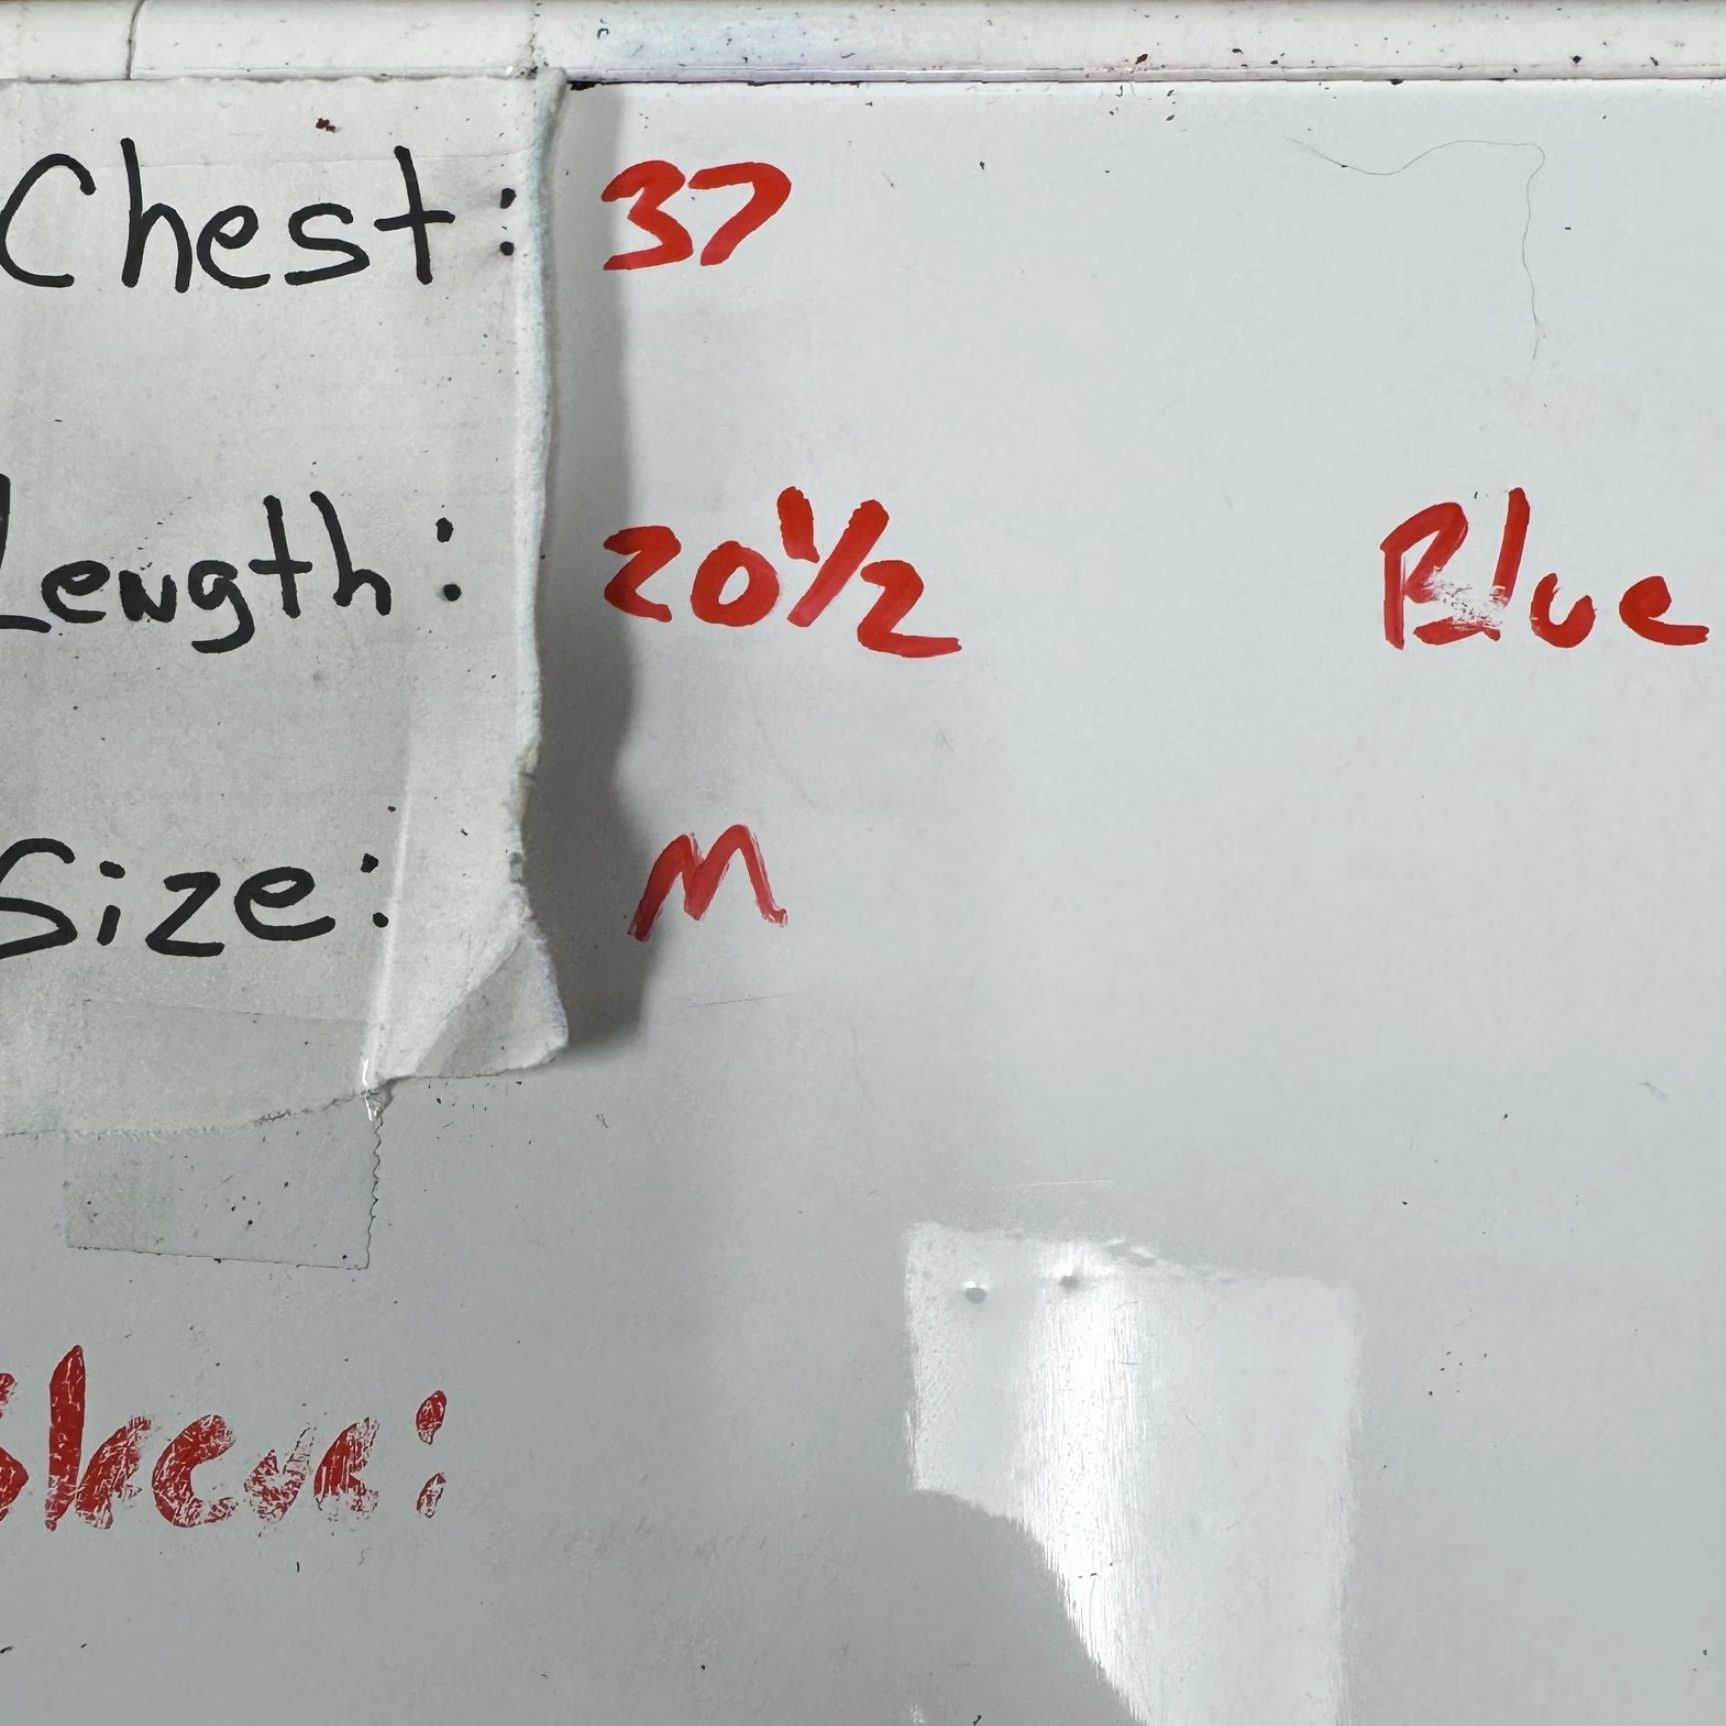 Chest: 37
Length: 20 1/2
Blue
Size: M